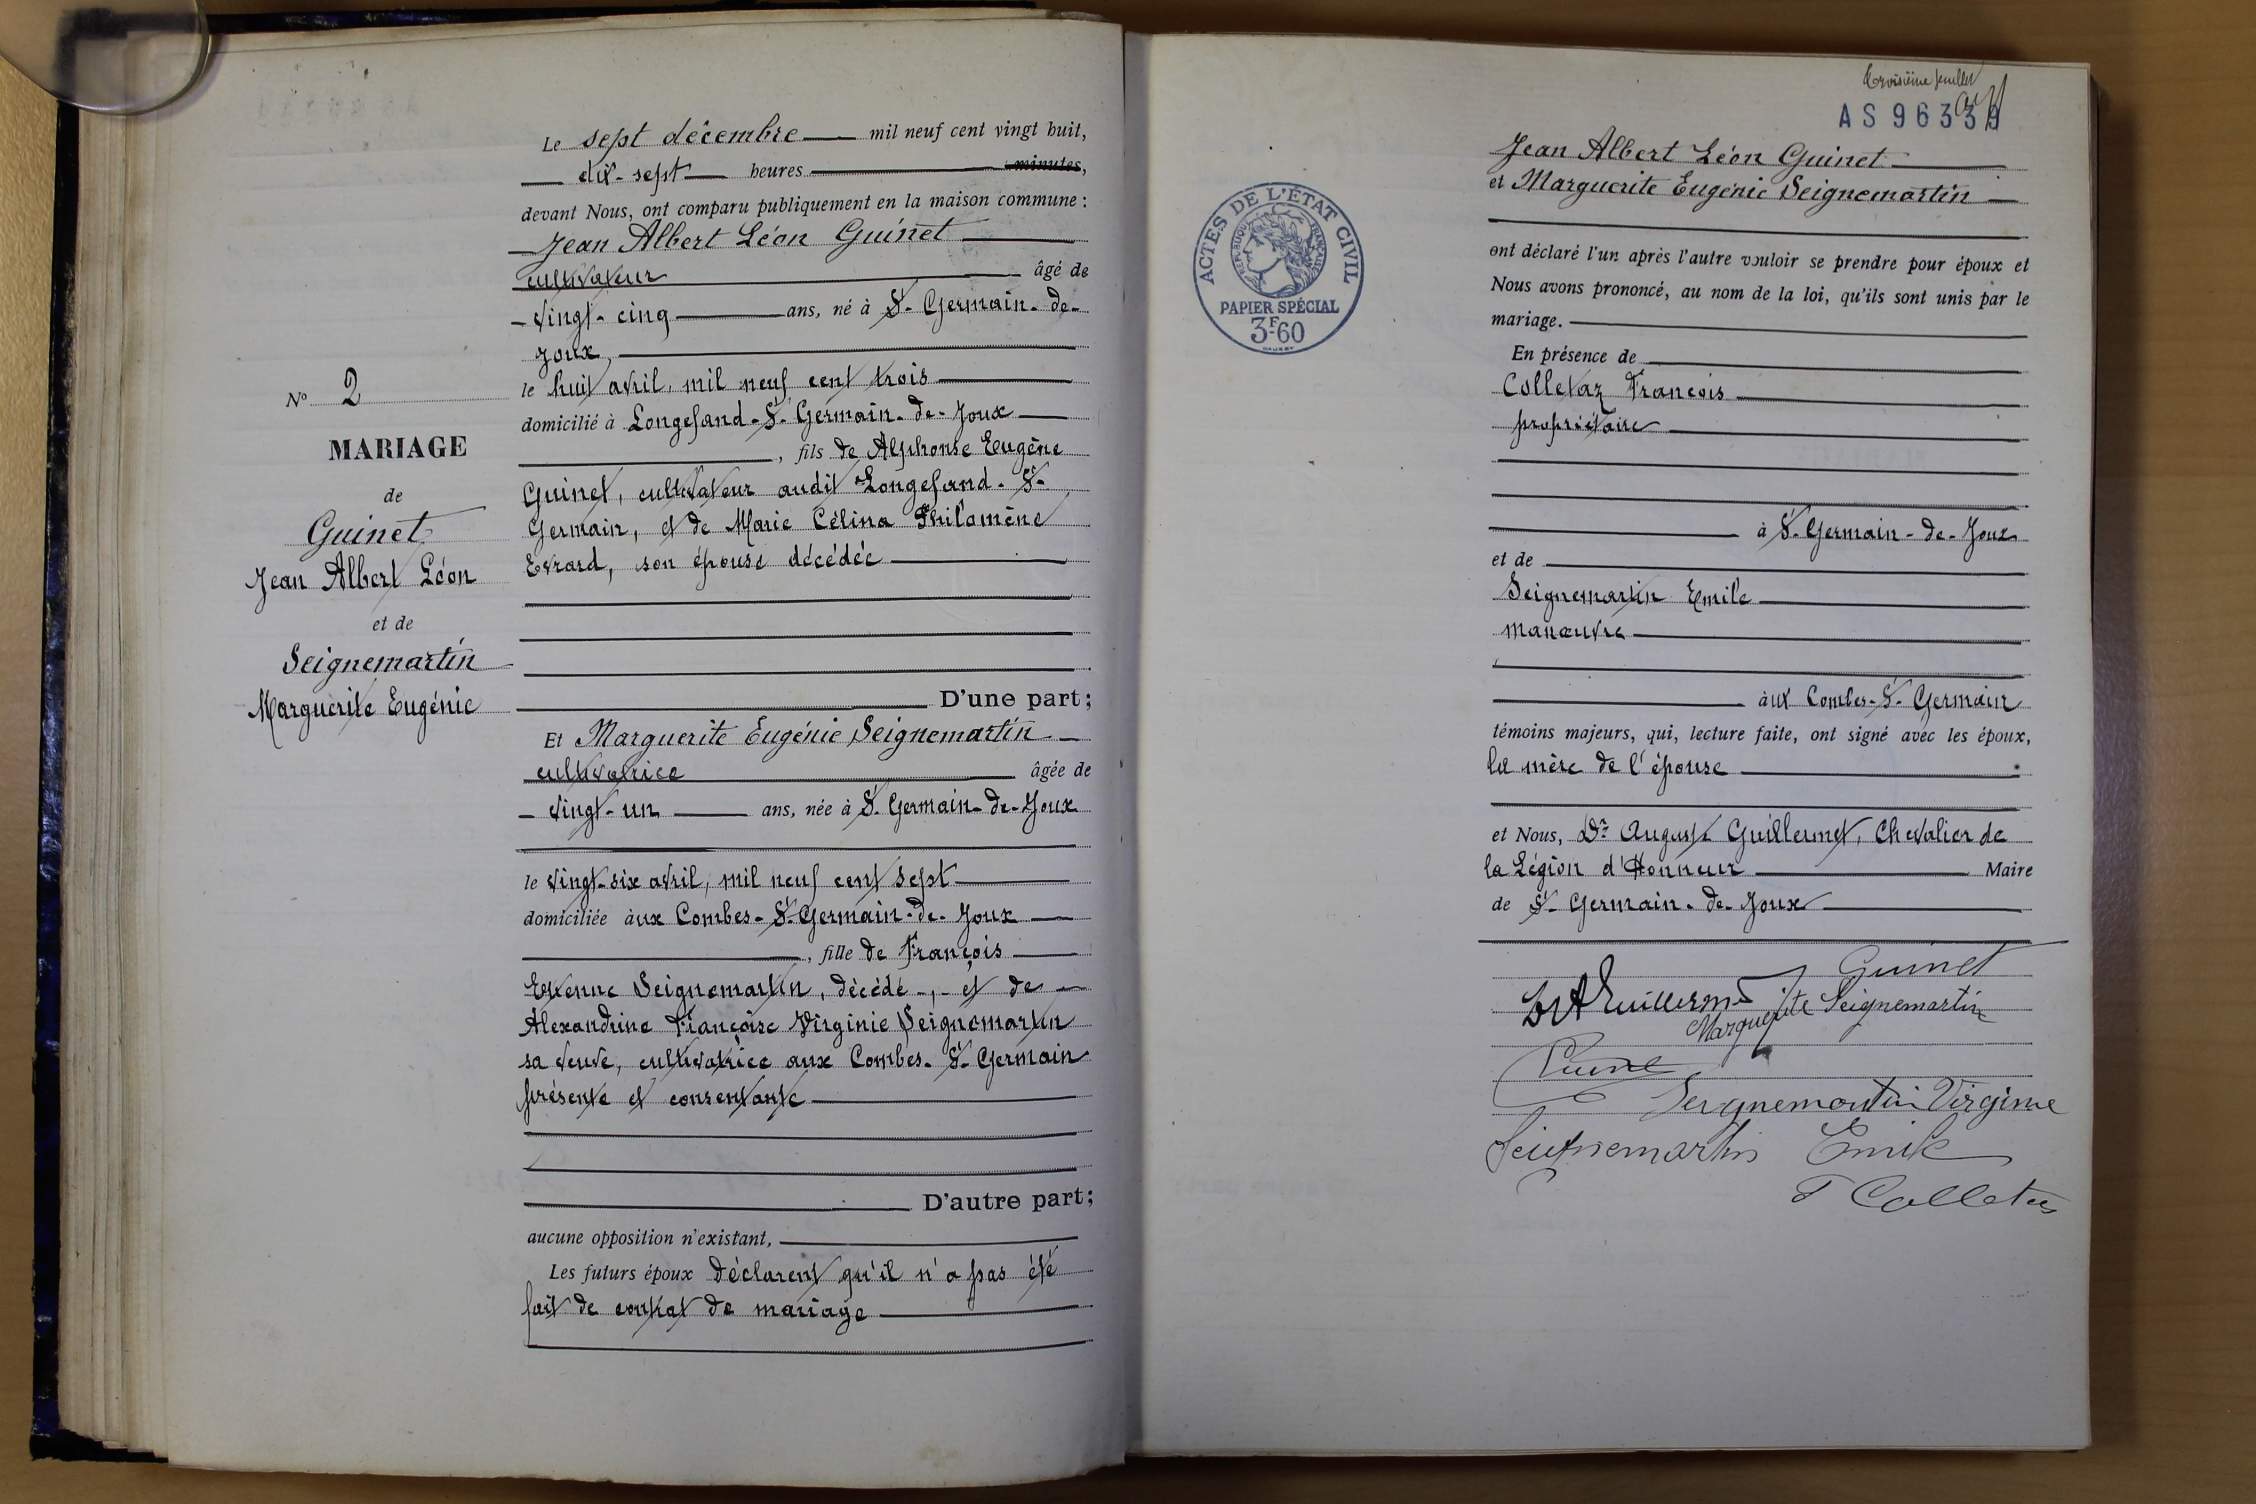 Le sept décembre mil neuf cent vingt huit,
dix-sept heures minutes,
devant Nous, ont comparu publiquement en la maison commune :
Jean Albert Léon Guinet
cultivateur âgé de
vingt-cinq ans, né à St-Germain-de-
Joux,
le huit avril, mil neuf cent trois
domicilié à Longefand-St-Germain-de-Joux
, fils de Alphonse Eugène
Guinet, cultivateur audit Longefand-St-
Germain, et de Marie Célina Philomène
Evrard, son épouse décédée
D'une part;
Et Marguerite Eugénie Seignemartin
cultivatrice âgée de
vingt-un ans, née à St-Germain-de-Joux
le vingt-six avril, mil neuf cent sept
domiciliée àux Combes-St-Germain-de-Joux
, fille de François
Etienne Seignemartin, décédé -,- et de
Alexandrine Françoise Virginie Seignemartin
sa veuve, cultivatrice aux Combes-St-Germain
présente et consentante
D'autre part;
aucune opposition n'existant,
Les futurs époux déclarent qu'il n'a pas été
fait de contrat de mariage
No 2
MARIAGE
de
Guinet
Jean Albert Léon
et de
Seignemartin
Marguerite Eugénie
troisième feuillet
AS 96339
ACTES DE L'ÉTAT CIVIL
RÉPUBLIQUE FRANÇAISE
PAPIER SPÉCIAL
3F60
Jean Albert Léon Guinet
et Marguerite Eugénie Seignemartin
ont déclaré l'un après l'autre vouloir se prendre pour époux et
Nous avons prononcé, au nom de la loi, qu'ils sont unis par le
mariage.
En présence de
Colletaz François
propriétaire
à St-Germain-de-Joux
et de
Seignemartin Emile
manœuvre
àux Combes-St-Germain
témoins majeurs, qui, lecture faite, ont signé avec les époux,
la mère de l'épouse
et Nous, Dr Auguste Guillermet, Chevalier de
la Légion d'Honneur Maire
de St-Germain-de-Joux
Guinet
Dr A Guillermet
Marguerite Seignemartin
Seignemartin Virginie
Seignemartin Emile
F Colletaz